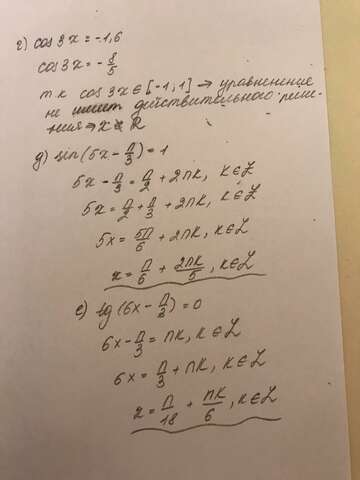 г) cos 3x = -1,6
cos 3x = - 8/5
т.к cos 3x ∈ [-1, 1] → уравнение
не имеет действительного реше-
ния → x ∉ R
д) sin(5x - π/3) = 1
5x - π/3 = π/2 + 2πk, k ∈ Z
5x = π/2 + π/3 + 2πk, k ∈ Z
5x = 5π/6 + 2πk, k ∈ Z
x = π/6 + 2πk/5, k ∈ Z
е) tg(6x - π/3) = 0
6x - π/3 = πk, k ∈ Z
6x = π/3 + πk, k ∈ Z
x = π/18 + πk/6, k ∈ Z